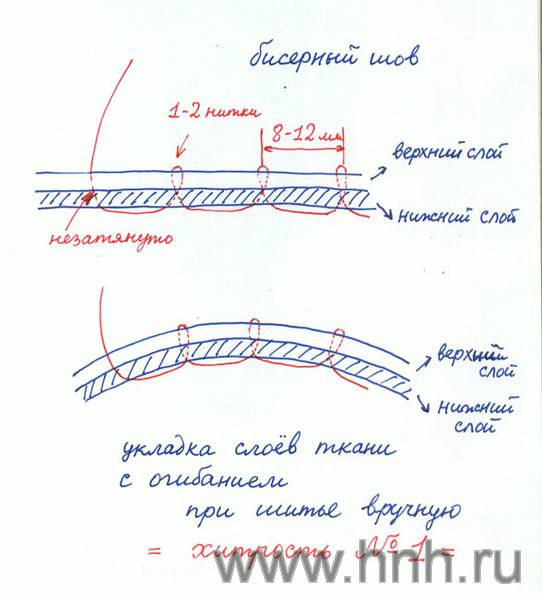 бисерный шов
1-2 нитки
8-12 мм
верхний слой
нижний слой
незатянуто
верхний
слой
нижний
слой
укладка слоёв ткани
с огибанием
при шитье вручную
= хитрость № 1 =
www.hnh.ru